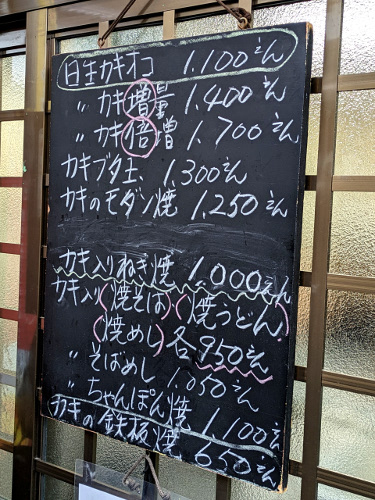 日生カキオコ 1.100ゑん
〃 カキ増量 1.400ゑん
〃 カキ倍増 1.700ゑん
カキブタ玉 1.300ゑん
カキのモダン焼 1.250ゑん
カキ入りねぎ焼 1.000ゑん
カキ入り(焼そば)(焼うどん)
(焼めし) 各950ゑん
〃 そばめし 1.050ゑん
〃 ちゃんぽん焼 1.100ゑん
(カキの鉄板焼 650ゑん